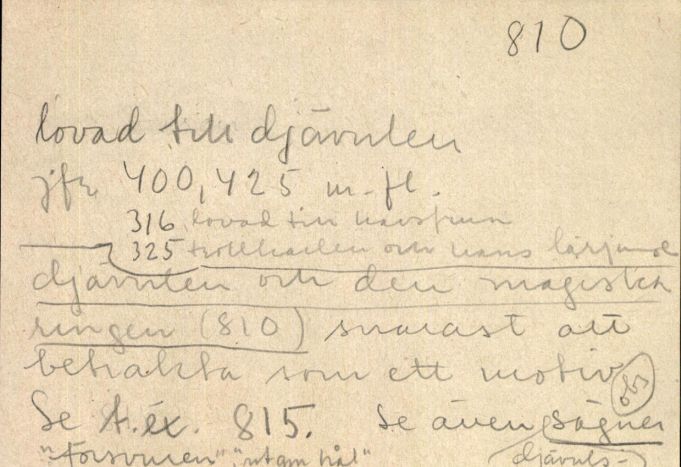 810
lovad till djävulen
jfr 400, 425 m.fl.
316 lovad till havsfrun
325 trollkarlen och hans lärjunge
djävulen och den magiska
ringen (810) snarast att
betrakta som ett motiv
obs
Se t.ex. 815. Se även sägner
"Försvuren" "utom hål"
djävuls-